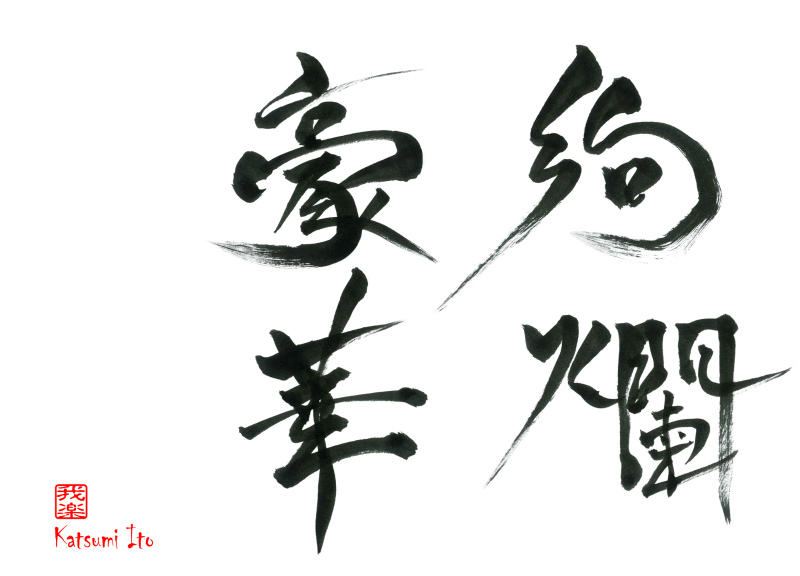 絢爛
豪華
我楽
Katsumi Ito